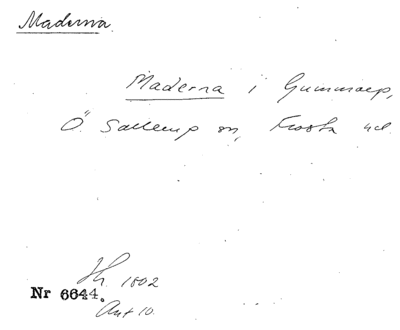 Maderna.
Maderna i Gummarp,
Ö. Sallerup sn, Frosta hd.
Sk. 1802
Nr 6644.
Ant 10.